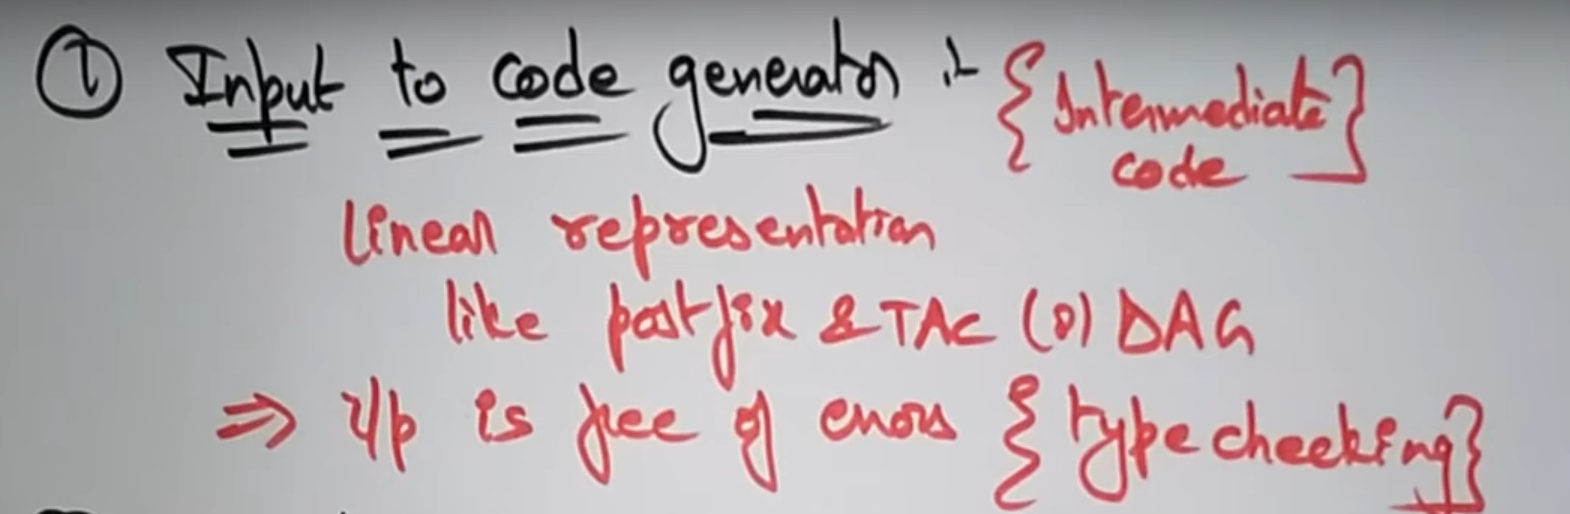 ① Input to code generator :- { Intermediate code }
linear representation
like postfix & TAC (or) DAG
⇒ i/p is free of errors { type checking }